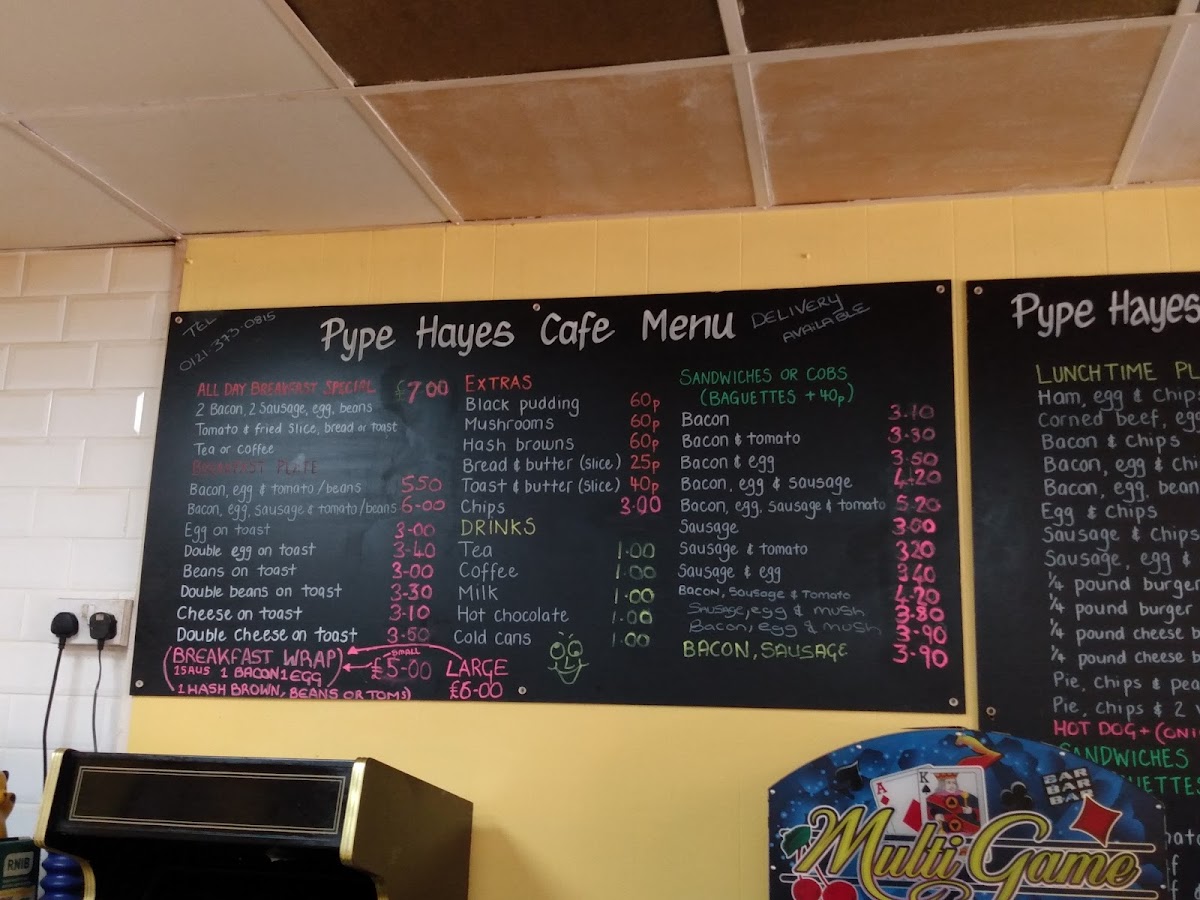 TEL
0121-373-0815
Pype Hayes Cafe Menu
DELIVERY
AVAILABLE
ALL DAY BREAKFAST SPECIAL £7.00
2 Bacon, 2 Sausage, egg, beans
Tomato & fried slice, bread or toast
Tea or coffee
BREAKFAST PLATE
Bacon, egg & tomato/beans 5.50
Bacon, egg, sausage & tomato/beans 6-00
Egg on toast 3-00
Double egg on toast 3-40
Beans on toast 3-00
Double beans on toast 3-30
Cheese on toast 3-10
Double Cheese on toast 3-50
(BREAKFAST WRAP)
1 SAUS 1 BACON 1 EGG
1 HASH BROWN, BEANS OR TOMS)
SMALL
£5-00
LARGE
£6-00
EXTRAS
Black pudding 60p
Mushrooms 60p
Hash browns 60p
Bread & butter (slice) 25p
Toast & butter (slice) 40p
Chips 3.00
DRINKS
Tea 1.00
Coffee 1.00
Milk 1.00
Hot chocolate 1.00
Cold cans 1.00
SANDWICHES OR COBS
(BAGUETTES +40p)
Bacon 3.10
Bacon & tomato 3.30
Bacon & egg 3.50
Bacon, egg & sausage 4.20
Bacon, egg, sausage & tomato 5.20
Sausage 3.00
Sausage & tomato 3.20
Sausage & egg 3.40
BACON, SAUSAGE & TOMATO 4.20
Sausage, egg & mush 3.80
Bacon, egg & mush 3.90
BACON, SAUSAGE 3.90
Pype Hayes
LUNCHTIME PL
Ham, egg & chips
Corned beef, eg
Bacon & chips
Bacon, egg & chi
Bacon, egg, bean
Egg & chips
Sausage & chips
Sausage, egg &
1/4 pound burger
1/4 pound burger
1/4 pound cheese b
1/4 pound cheese b
Pie, chips & pea
Pie, chips & 2 v
HOT DOG + (ONI
SANDWICHES
UETTES
BAR
BAR
BAR
A
K
Multi Game
RNIB